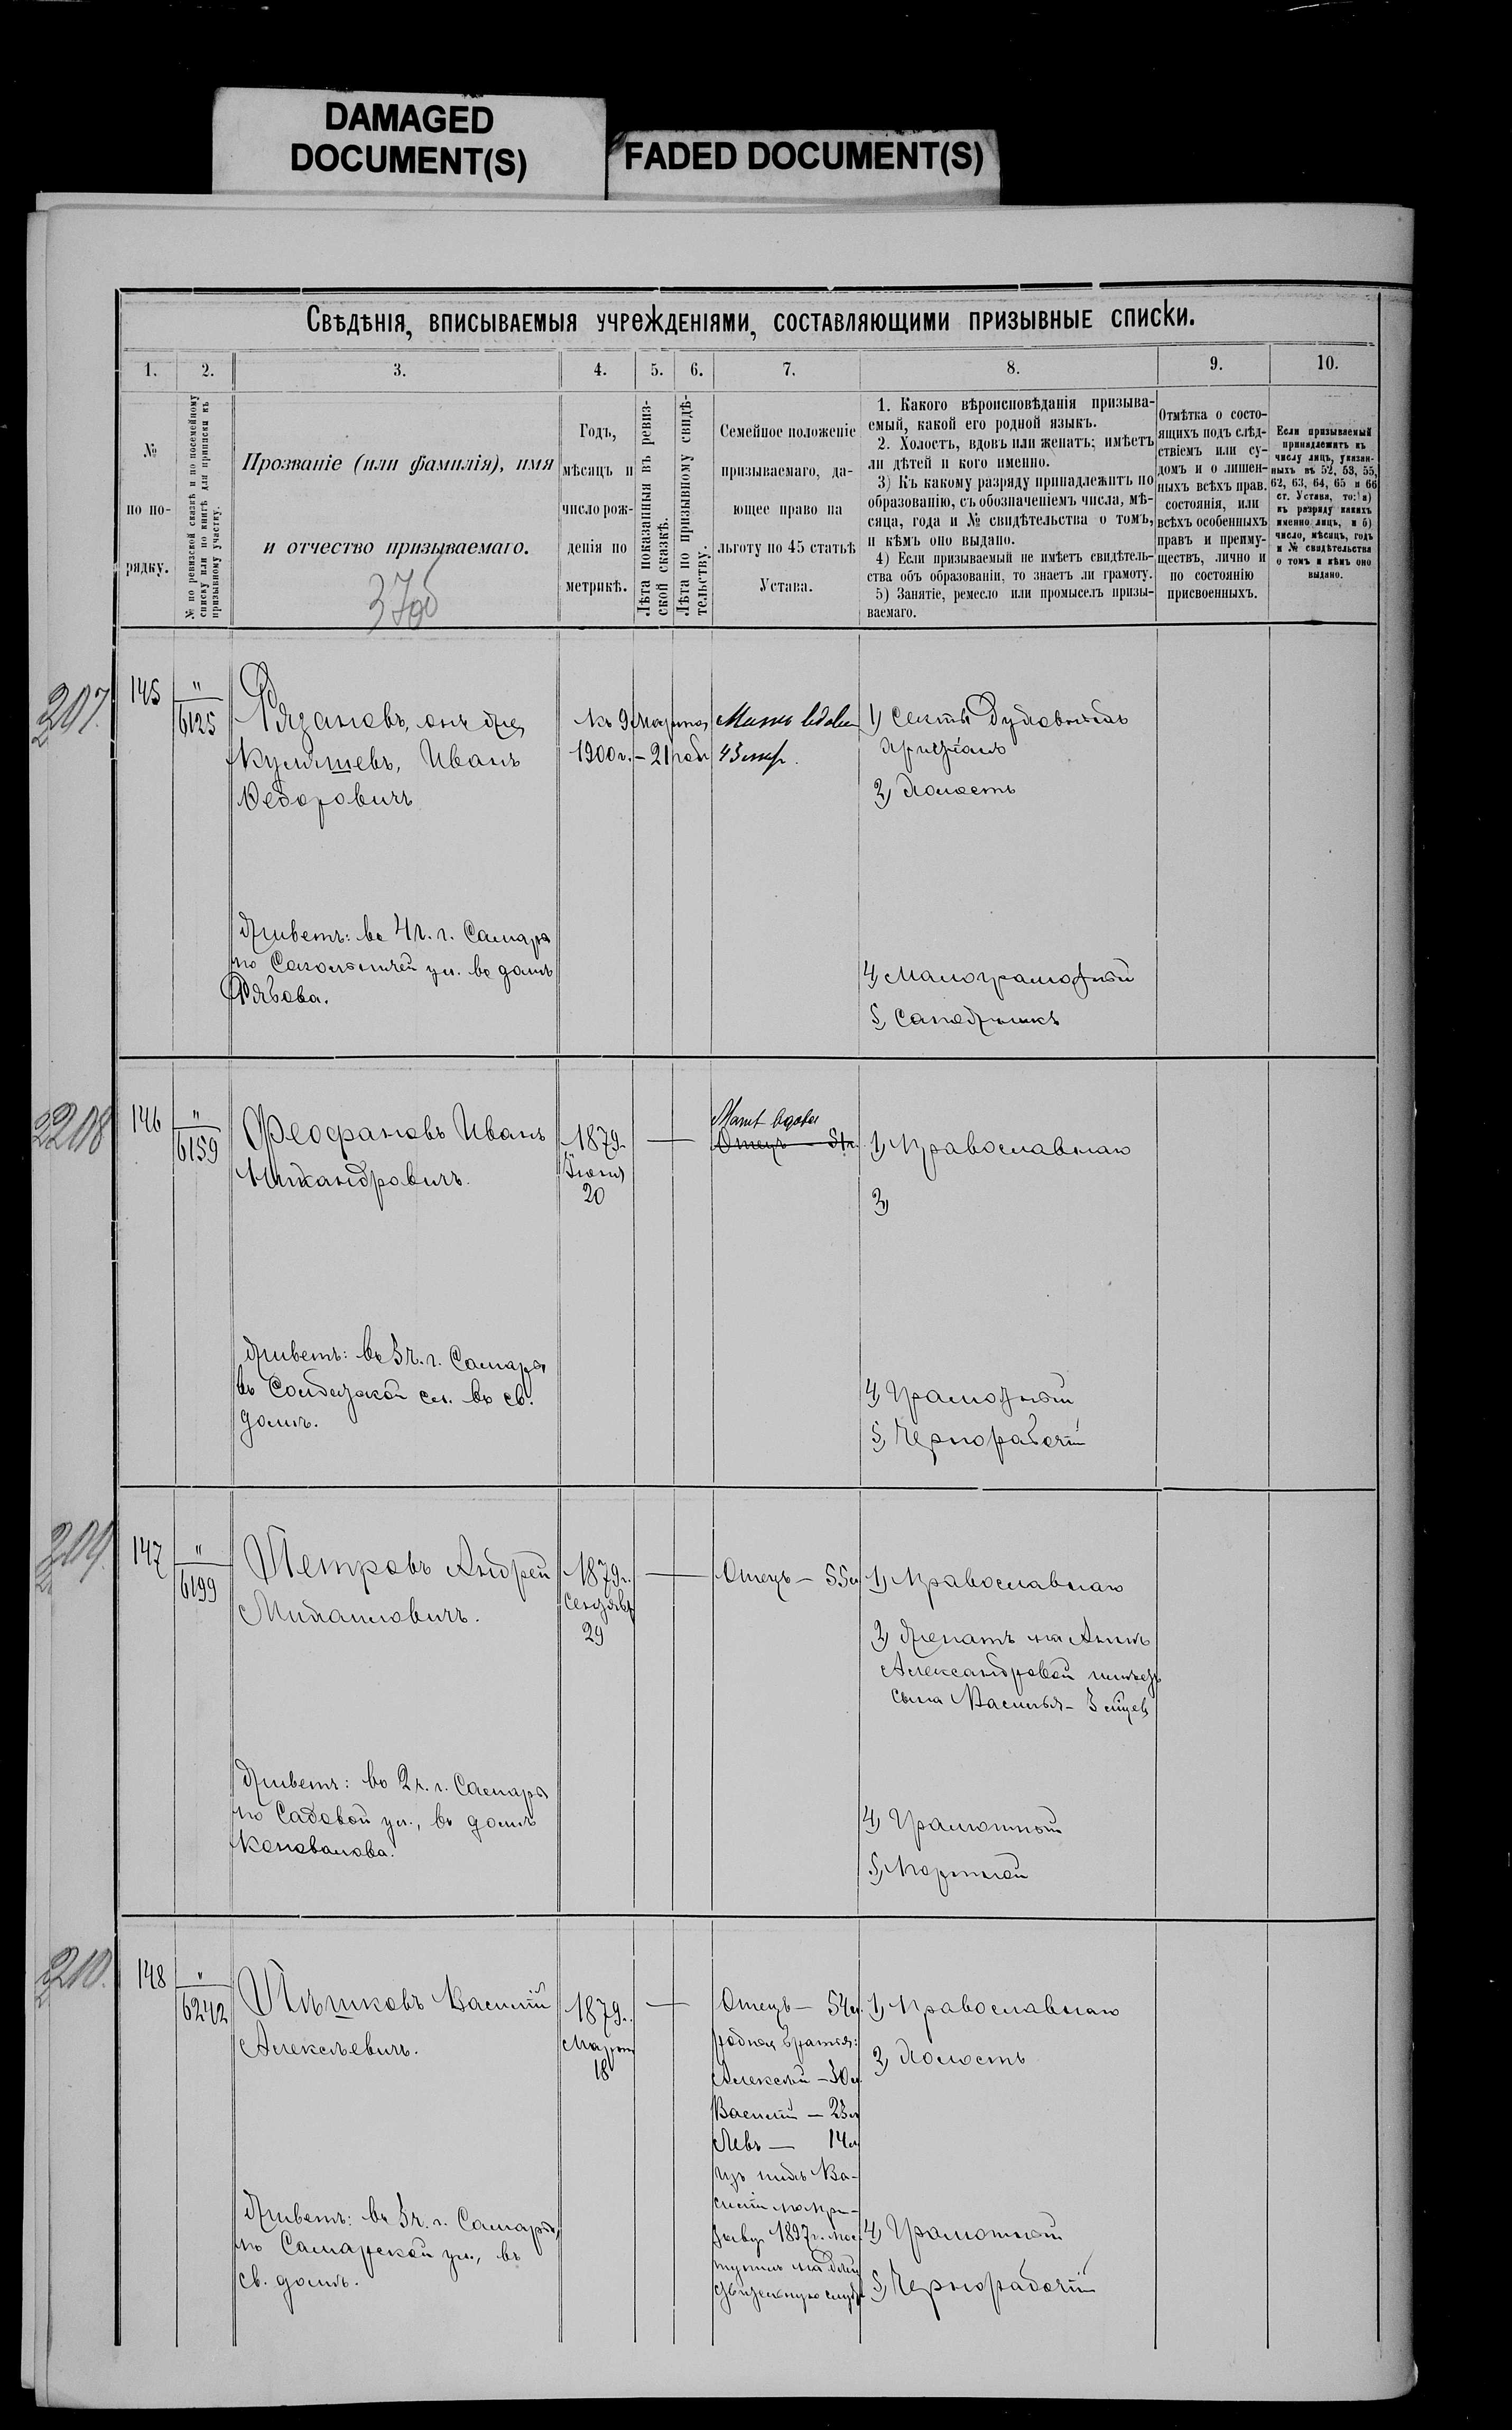 DAMAGED
DOCUMENT(S)
FADED DOCUMENT(S)
Свѣдѣнія, вписываемыя учрежденіями, составляющими призывные списки.
1. 2. 3. 4. 5. 6. 7. 8. 9. 10.
№
по по-
рядку.
№ по ревизской сказкѣ и по посемейному
списку или по книгѣ для приписки къ
призывному участку.
Прозваніе (или фамилія), имя
и отчество призываемаго.
Годъ,
мѣсяцъ и
число рож-
денія по
метрикѣ.
Лѣта показанныя въ ревиз-
ской сказкѣ.
Лѣта по призывному свидѣ-
тельству.
Семейное положеніе
призываемаго, да-
ющее право на
льготу по 45 статьѣ
Устава.
1. Какого вѣроисповѣданія призыва-
емый, какой его родной языкъ.
2. Холостъ, вдовъ или женатъ; имѣетъ
ли дѣтей и кого именно.
3) Къ какому разряду принадлежитъ по
образованію, съ обозначеніемъ числа, мѣ-
сяца, года и № свидѣтельства о томъ,
и кѣмъ оно выдано.
4) Если призываемый не имѣетъ свидѣтель-
ства объ образованіи, то знаетъ ли грамоту.
5) Занятіе, ремесло или промыселъ призы-
ваемаго.
Отмѣтка о состо-
ящихъ подъ слѣд-
ствіемъ или су-
домъ и о лишен-
ныхъ всѣхъ прав.
состоянія, или
всѣхъ особенныхъ
правъ и преиму-
ществъ, лично и
по состоянію
присвоенныхъ.
Если призываемый
принадлежитъ къ
числу лицъ, указан-
ныхъ въ 52, 53, 55,
62, 63, 64, 65 и 66
ст. Устава, то: а)
къ разряду какихъ
именно лицъ, и б)
число, мѣсяцъ, годъ
и № свидѣтельства
о томъ и кѣмъ оно
выдано.
207.
145
"
6125
Рязановъ, онъ же
Кулдшевъ, Иванъ
Ѳедоровичъ
къ 9 марта
1900 г. – 21 года
Мать вдова
43 лѣт.
1) Секты Духовныхъ
христіанъ
2) Холостъ
Живетъ: въ 4 ч. г. Самары
по ул. въ домѣ
4) Малограмотный
5) Сапожникъ
2208
146
"
6159
Феофановъ Иванъ
Никандровичъ.
1879
Іюня
20
Мать вдова
Отецъ
1) Православнаго
2)
Живетъ: въ 3 ч. г. Самары
въ Солдатской сл. въ св.
домѣ.
4) Грамотный
5) Чернорабочій
209.
147
"
6199
Петровъ Андрей
Михаиловичъ.
1879 г.
Сентября
29
Отецъ – 55 л
1) Православнаго
2) Женатъ на Аннѣ
Александровой имѣетъ
сына Василья – 3 мѣсяц.
Живетъ: во 2 ч. г. Самары
по Садовой ул., въ домѣ
Коновалова.
4) Грамотный
5) Портной
210.
148
"
6242
Пѣшковъ Василій
Алексѣевичъ.
1879 г.
Марта
18
Отецъ – 54 л.
родная братья:
Алексѣй – 30 л.
Василій – 23 л
Левъ – 14 л
изъ нихъ Ва-
силій по при-
зыву 1897 г. пос-
тупилъ на дѣй
ствительную служб
1) Православнаго
2) Холостъ
Живетъ: въ 3 ч. г. Самары,
по Самарской ул., въ
св. домѣ.
4) Грамотный
5) Чернорабочій